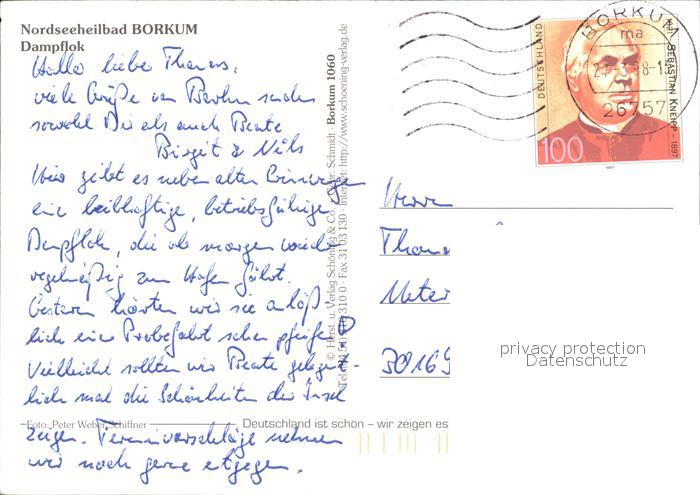 Nordseeheilbad BORKUM
Dampflok
Hallo lieber Thomas,
viele Grüße von Borkum senden
sowohl Dir als auch Beate
Birgit & Nils
Hier gibt es neben alten Erinnerungen
eine leibhaftige, betriebsfähige
Dampflok, die ab morgen wieder
regelmäßig zum Hafen fährt.
Gestern hörten wir sie anläß-
lich einer Probefahrt schon pfeifen
Vielleicht sollten wir Beate gelegent-
lich mal die Schönheiten der Insel
zeigen. Terminvorschläge nehmen
wir noch gerne entgegen.
Foto: Peter Weber, Schiffner
Deutschland ist schön – wir zeigen es
Schmidt · Borkum 1060
Internet: http://www.schoening-verlag.de
© Herst. u. Verlag Schöning & Co.
310 0 · Fax 31 03 130
BORKUM
ma
26757
DEUTSCHLAND
SEBASTIAN KNEIPP
1897
100
1997
Herrn
Thoma
Meter
30169
privacy protection
Datenschutz